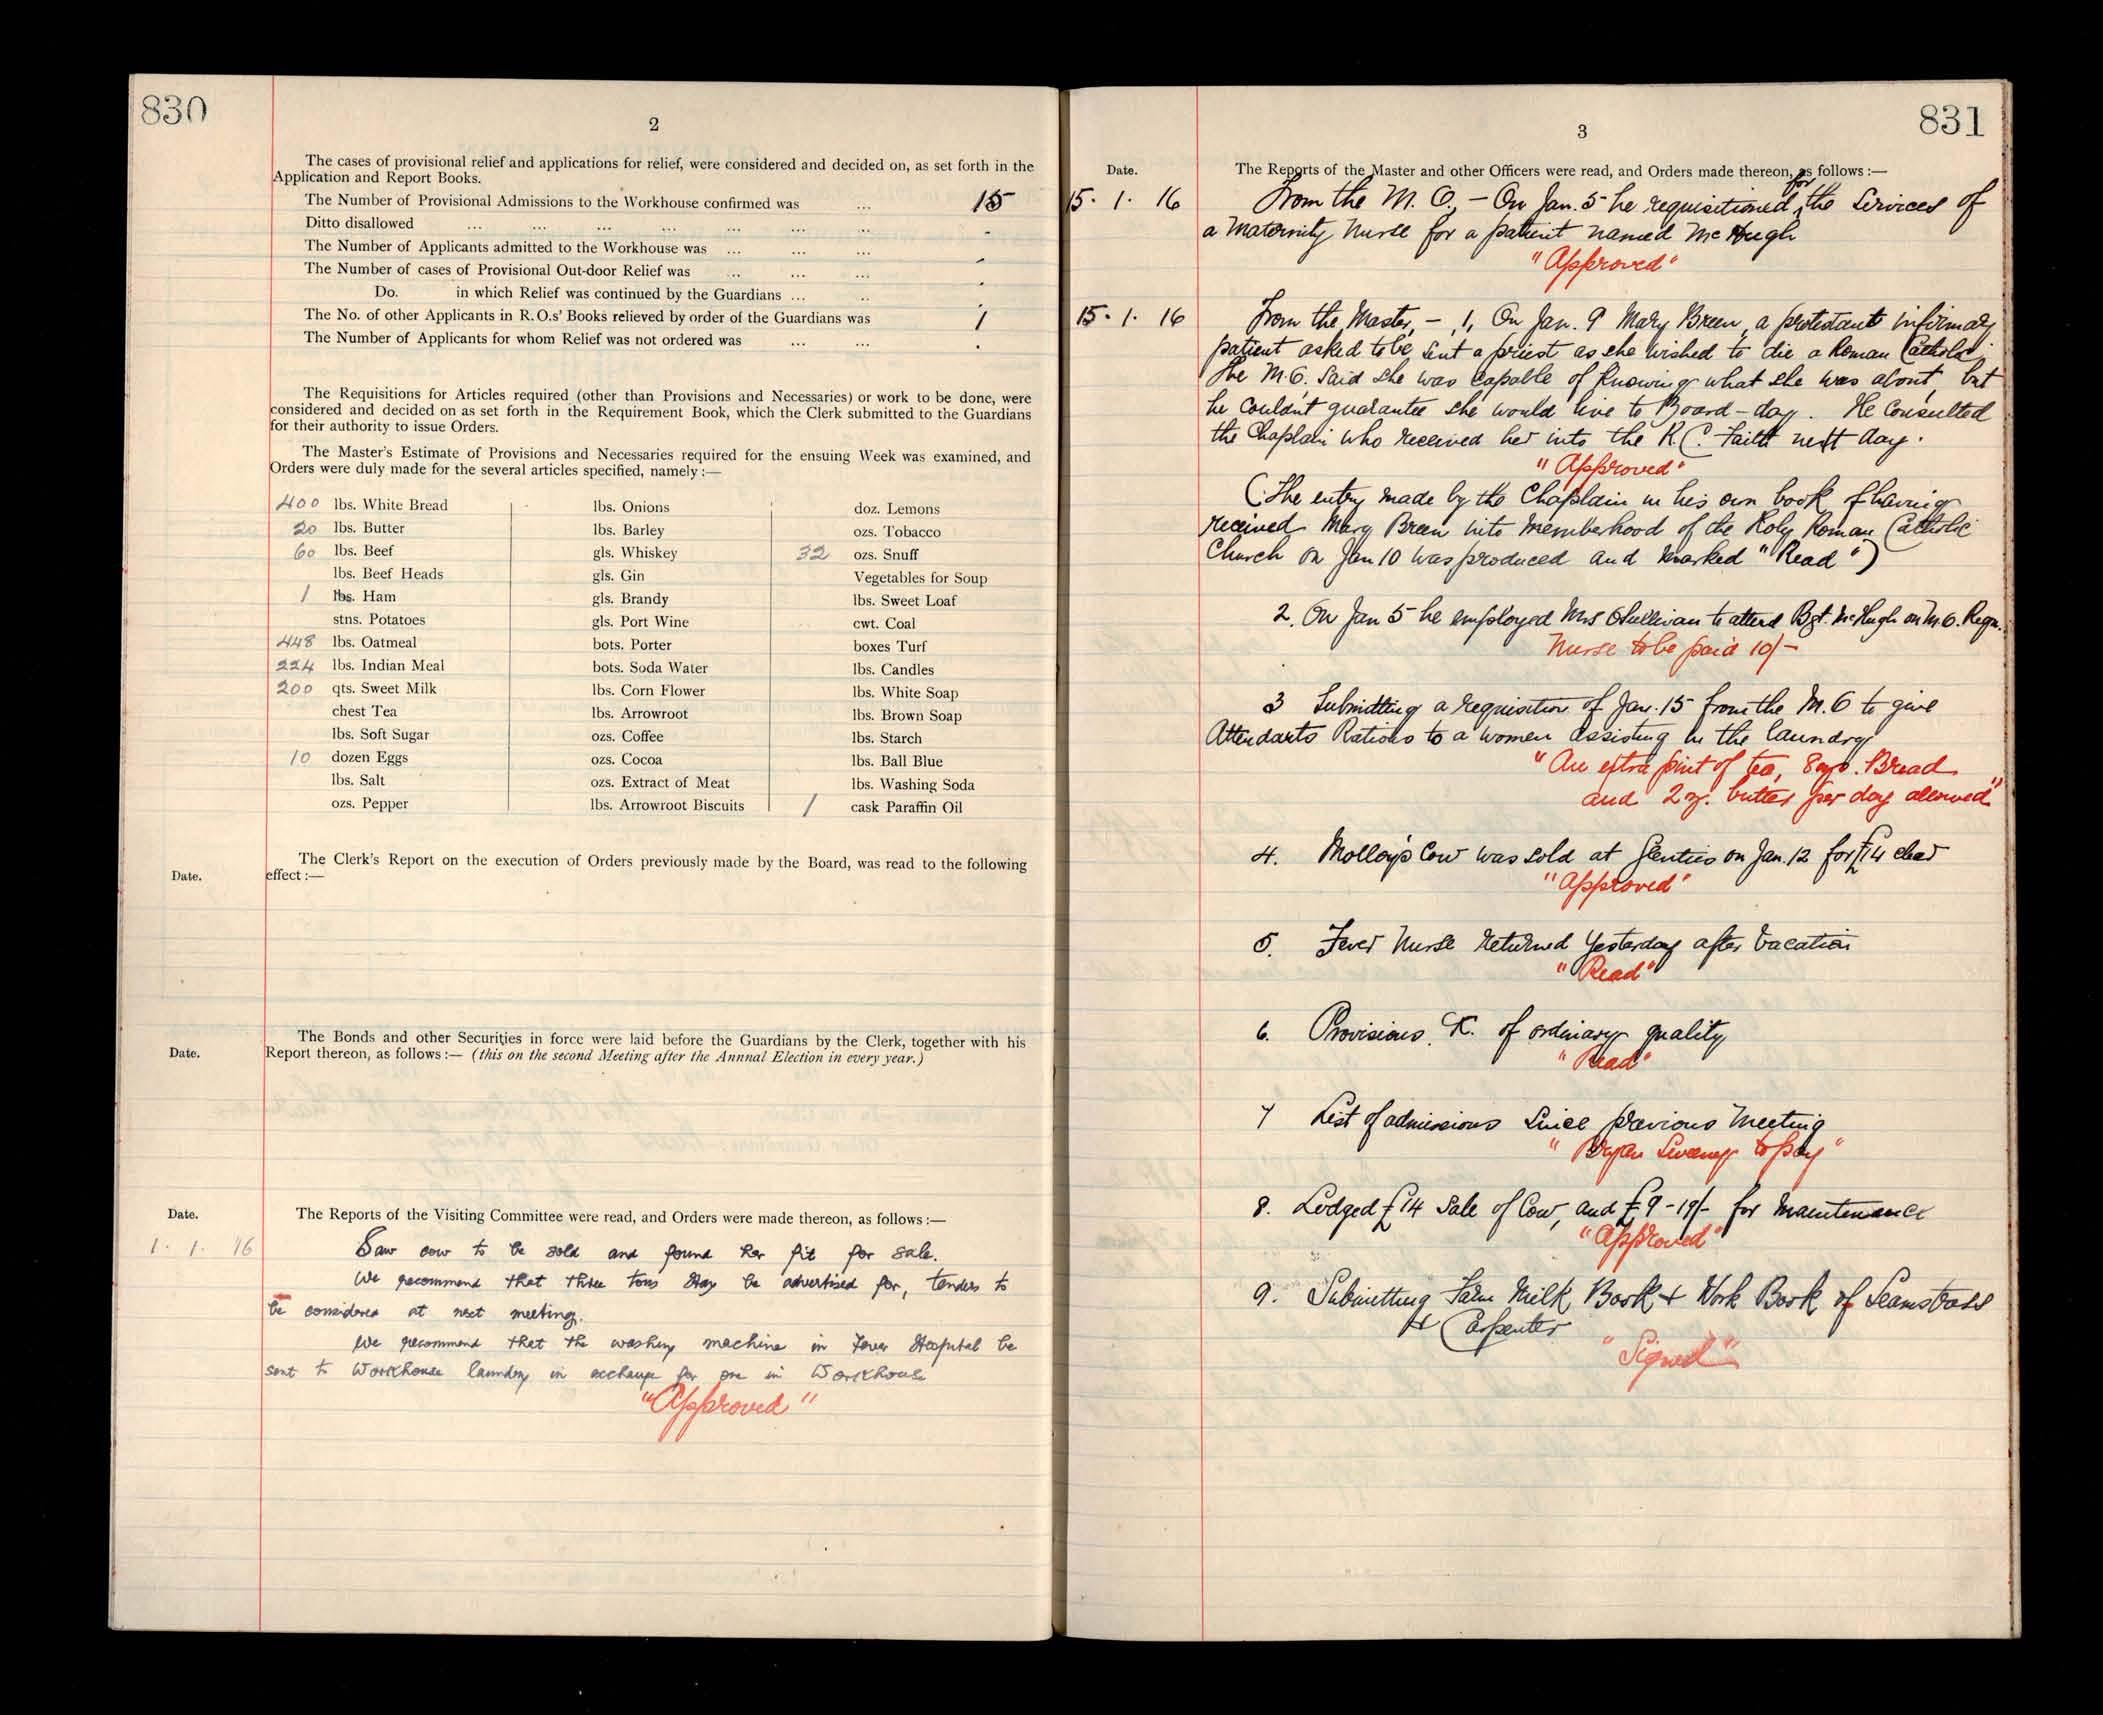 830
2
The cases of provisional relief and applications for relief, were considered and decided on, as set forth in the
Application and Report Books.
The Number of Provisional Admissions to the Workhouse confirmed was ... 15
Ditto disallowed ... ... ... ... ... ... ... -
The Number of Applicants admitted to the Workhouse was ... ... ... -
The Number of cases of Provisional Out-door Relief was ... ... ... .
Do. in which Relief was continued by the Guardians ... .. .
The No. of other Applicants in R.O.s' Books relieved by order of the Guardians was 1
The Number of Applicants for whom Relief was not ordered was ... ... .
The Requisitions for Articles required (other than Provisions and Necessaries) or work to be done, were
considered and decided on as set forth in the Requirement Book, which the Clerk submitted to the Guardians
for their authority to issue Orders.
The Master's Estimate of Provisions and Necessaries required for the ensuing Week was examined, and
Orders were duly made for the several articles specified, namely :—
400 lbs. White Bread lbs. Onions doz. Lemons
20 lbs. Butter lbs. Barley ozs. Tobacco
60 lbs. Beef gls. Whiskey 32 ozs. Snuff
lbs. Beef Heads gls. Gin Vegetables for Soup
1 lbs. Ham gls. Brandy lbs. Sweet Loaf
stns. Potatoes gls. Port Wine cwt. Coal
448 lbs. Oatmeal bots. Porter boxes Turf
224 lbs. Indian Meal bots. Soda Water lbs. Candles
200 qts. Sweet Milk lbs. Corn Flower lbs. White Soap
chest Tea lbs. Arrowroot lbs. Brown Soap
lbs. Soft Sugar ozs. Coffee lbs. Starch
10 dozen Eggs ozs. Cocoa lbs. Ball Blue
lbs. Salt ozs. Extract of Meat lbs. Washing Soda
ozs. Pepper lbs. Arrowroot Biscuits 1 cask Paraffin Oil
The Clerk's Report on the execution of Orders previously made by the Board, was read to the following
Date. effect :—
The Bonds and other Securities in force were laid before the Guardians by the Clerk, together with his
Date. Report thereon, as follows :— (this on the second Meeting after the Annnal Election in every year.)
Date. The Reports of the Visiting Committee were read, and Orders were made thereon, as follows :—
1. 1. 16 Saw cow to be sold and found her fit for sale.
We recommend that three tons Hay be advertised for, tenders to
be considered at next meeting.
We recommend that the washing machine in Fever Hospital be
sent to Workhouse laundry in exchange for one in Workhouse
"Approved"
831
3
Date. The Reports of the Master and other Officers were read, and Orders made thereon, as follows :—
15. 1. 16 From the M. O. – On Jan. 5 he requisitioned for the Services of
a Maternity Nurse for a patient named McHugh
"Approved"
15. 1. 16 From the Master, – 1, On Jan. 9 Mary Breen, a protestant infirmary
patient asked to be sent a priest as she wished to die a Roman Catholic.
The M.O. said she was capable of knowing what she was about, but
he couldn't guarantee she would live to Board-day. He consulted
the Chaplain who received her into the R.C. Faith next day.
"Approved"
(The entry made by the Chaplain in his own book of having
received Mary Breen into memberhood of the Holy Roman Catholic
Church on Jan 10 was produced and marked "Read")
2. On Jan 5 he employed Mrs O'Sullivan to attend Bgt. McHugh on M.O. Reqn.
Nurse to be paid 10/-
3 Submitting a requisition of Jan. 15 from the M.O to give
Attendants Rations to a women assisting in the laundry
"An extra pint of tea, 8 ozs. Bread
and 2 oz. butter per day allowed"
4. Molloy's Cow was sold at Glenties on Jan. 12 for £14 clear
"Approved"
5. Fever Nurse returned yesterday after Vacation
"Read"
6. Provisions &c. of ordinary quality
"Read"
7 List of admissions since previous Meeting
"Bryan Sweeney to pay"
8. Lodged £14 Sale of Cow, and £9-19/- for Maintenance
"Approved"
9. Submitting Farm Milk Book & Work Book of Seamstress
& Carpenter
"Signed"